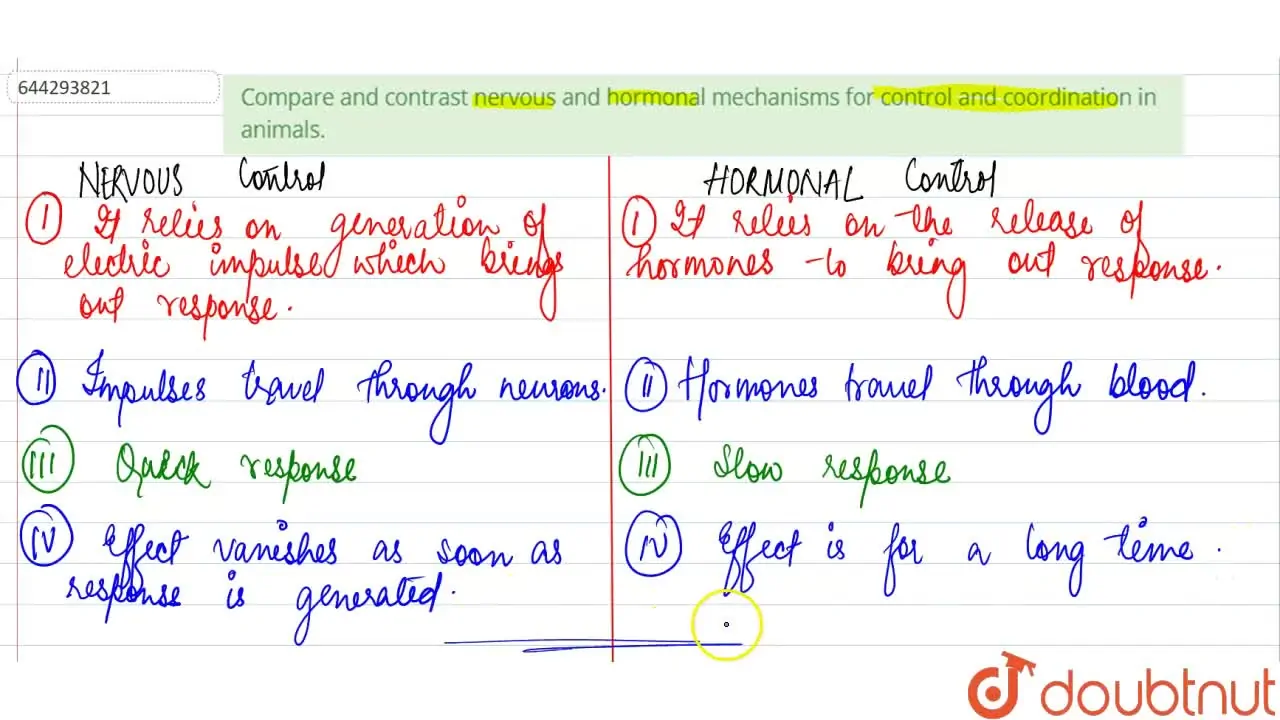 644293821
Compare and contrast nervous and hormonal mechanisms for control and coordination in
animals.
NERVOUS Control
I It relies on generation of
electric impulse which brings
out response.
II Impulses travel through neurons.
III Quick response
IV Effect vanishes as soon as
response is generated.
HORMONAL Control
I It relies on the release of
hormones to bring out response.
II Hormones travel through blood.
III Slow response
IV Effect is for a long time.
doubtnut